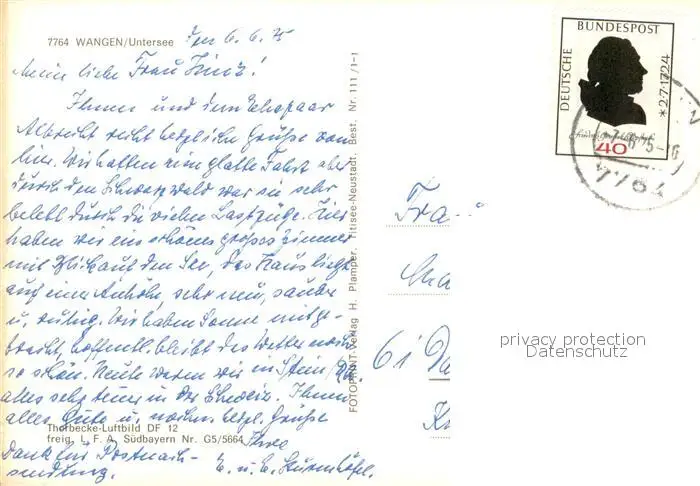 7764 WANGEN/Untersee
den 6.6.75
Meine liebe Frau
Ihnen und dem Ehepaar
Albrecht recht herzliche Grüße von
hier. Wir hatten eine glatte Fahrt aber
durch den Schwarzwald war sie sehr
belebt durch die vielen Lastzüge. Hier
haben wir ein schönes grosses Zimmer
mit Blick auf den See, das Haus liegt
auf einer Anhöhe, sehr neu, sauber
u. ruhig. Wir haben Sonne mitge-
bracht, hoffentl. bleibt das Wetter noch
so schön. Heute waren wir in Stein/Rh.
alles sehr teuer in der Schweiz. Ihnen
alles Gute u. nochm. herzl. Grüße
Ihre
Dank für Postnach-
sendung.
E. u. E. Sturmhöfel.
Thorbecke-Luftbild DF 12
freig. L. F. A. Südbayern Nr. G5/5664
FOTOPRINT-Verlag H. Plamper, Titisee-Neustadt, Best. Nr. 111/1-1
DEUTSCHE BUNDESPOST
*2·7·1724
40
7764
Fra
61 Da
privacy protection
Datenschutz